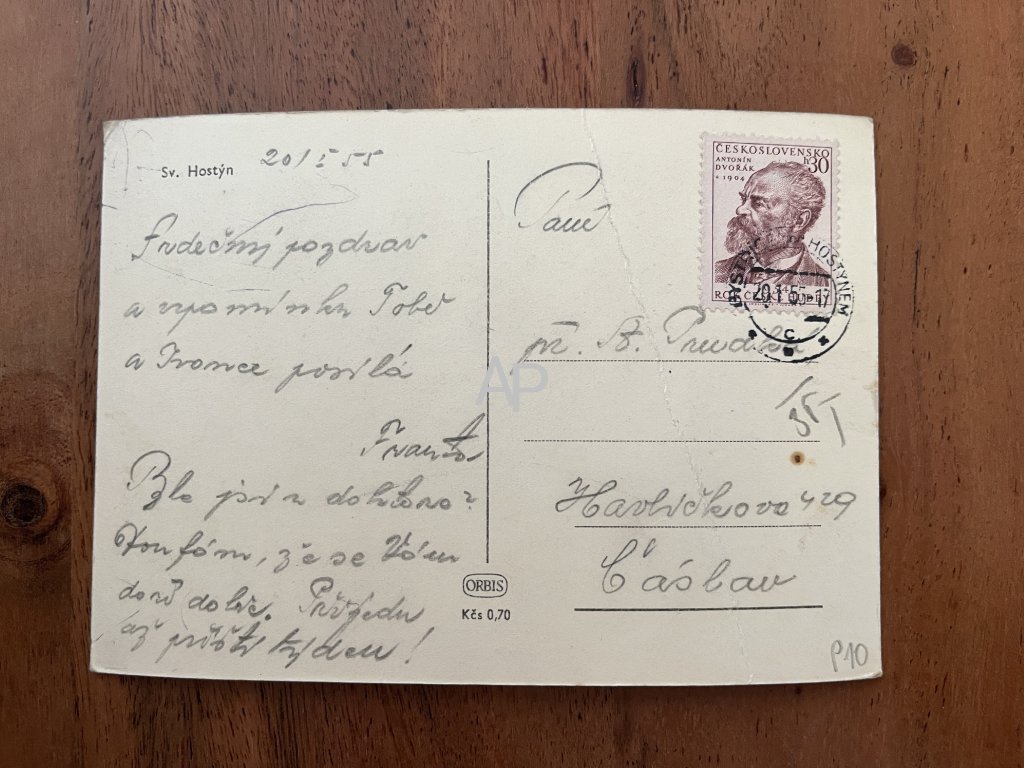 Sv. Hostýn
20/I 55
Srdečný pozdrav
a vzpomínku Tobě
a Ivance posílá
Franta
Byla jsi u doktora?
Doufám, že se Vám
daří dobře. Přijedu
až příští týden!
ORBIS
Kčs 0,70
Paní
A.
Havlíčkova 429
Čáslav
ČESKOSLOVENSKO
ANTONÍN
DVOŘÁK
* 1904
h30
HOSTÝNEM
20.1.55-17
C
AP
P10